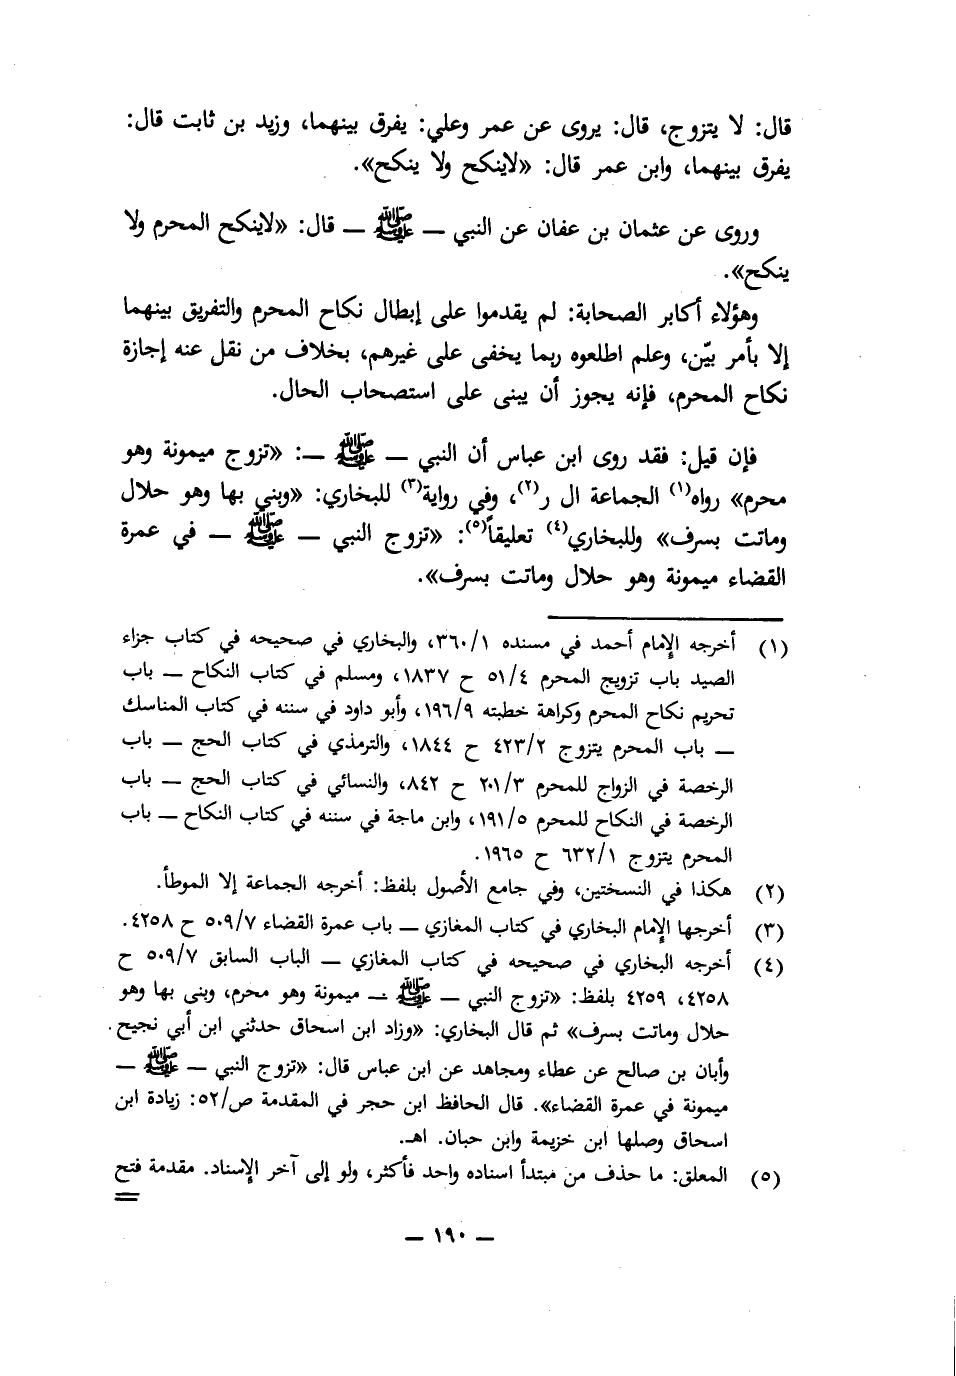 قال: لا يتزوج، قال: يروى عن عمر وعلي: يفرق بينهما، وزيد بن ثابت قال:
يفرق بينهما، وابن عمر قال: «لاينكح ولا ينكح».
وروى عن عثمان بن عفان عن النبي — ﷺ — قال: «لاينكح المحرم ولا
ينكح».
وهؤلاء أكابر الصحابة: لم يقدموا على إبطال نكاح المحرم والتفريق بينهما
إلا بأمر بيّن، وعلم اطلعوه ربما يخفى على غيرهم، بخلاف من نقل عنه إجازة
نكاح المحرم، فإنه يجوز أن يبنى على استصحاب الحال.
فإن قيل: فقد روى ابن عباس أن النبي — ﷺ —: «تزوج ميمونة وهو
محرم» رواه(١) الجماعة ال ر(٢)، وفي رواية(٣) للبخاري: «وبني بها وهو حلال
وماتت بسرف» وللبخاري(٤) تعليقاً(٥): «تزوج النبي — ﷺ — في عمرة
القضاء ميمونة وهو حلال وماتت بسرف».
(١) أخرجه الإمام أحمد في مسنده ٣٦٠/١، والبخاري في صحيحه في كتاب جزاء
الصيد باب تزويج المحرم ٥١/٤ ح ١٨٣٧، ومسلم في كتاب النكاح — باب
تحريم نكاح المحرم وكراهة خطبته ١٩٦/٩، وأبو داود في سننه في كتاب المناسك
— باب المحرم يتزوج ٤٢٣/٢ ح ١٨٤٤، والترمذي في كتاب الحج — باب
الرخصة في الزواج للمحرم ٢٠١/٣ ح ٨٤٢، والنسائي في كتاب الحج — باب
الرخصة في النكاح للمحرم ١٩١/٥، وابن ماجة في سننه في كتاب النكاح — باب
المحرم يتزوج ٦٣٢/١ ح ١٩٦٥.
(٢) هكذا في النسختين، وفي جامع الأصول بلفظ: أخرجه الجماعة إلا الموطأ.
(٣) أخرجها الإمام البخاري في كتاب المغازي — باب عمرة القضاء ٥٠٩/٧ ح ٤٢٥٨.
(٤) أخرجه البخاري في صحيحه في كتاب المغازي — الباب السابق ٥٠٩/٧ ح
٤٢٥٨، ٤٢٥٩ بلفظ: «تزوج النبي — ﷺ — ميمونة وهو محرم، وبنى بها وهو
حلال وماتت بسرف» ثم قال البخاري: «وزاد ابن اسحاق حدثني ابن أبي نجيح
وأبان بن صالح عن عطاء ومجاهد عن ابن عباس قال: «تزوج النبي — ﷺ —
ميمونة في عمرة القضاء». قال الحافظ ابن حجر في المقدمة ص/٥٢: زيادة ابن
اسحاق وصلها ابن خزيمة وابن حبان. اهـ.
(٥) المعلق: ما حذف من مبتدأ اسناده واحد فأكثر، ولو إلى آخر الإسناد. مقدمة فتح
=
— ١٩٠ —